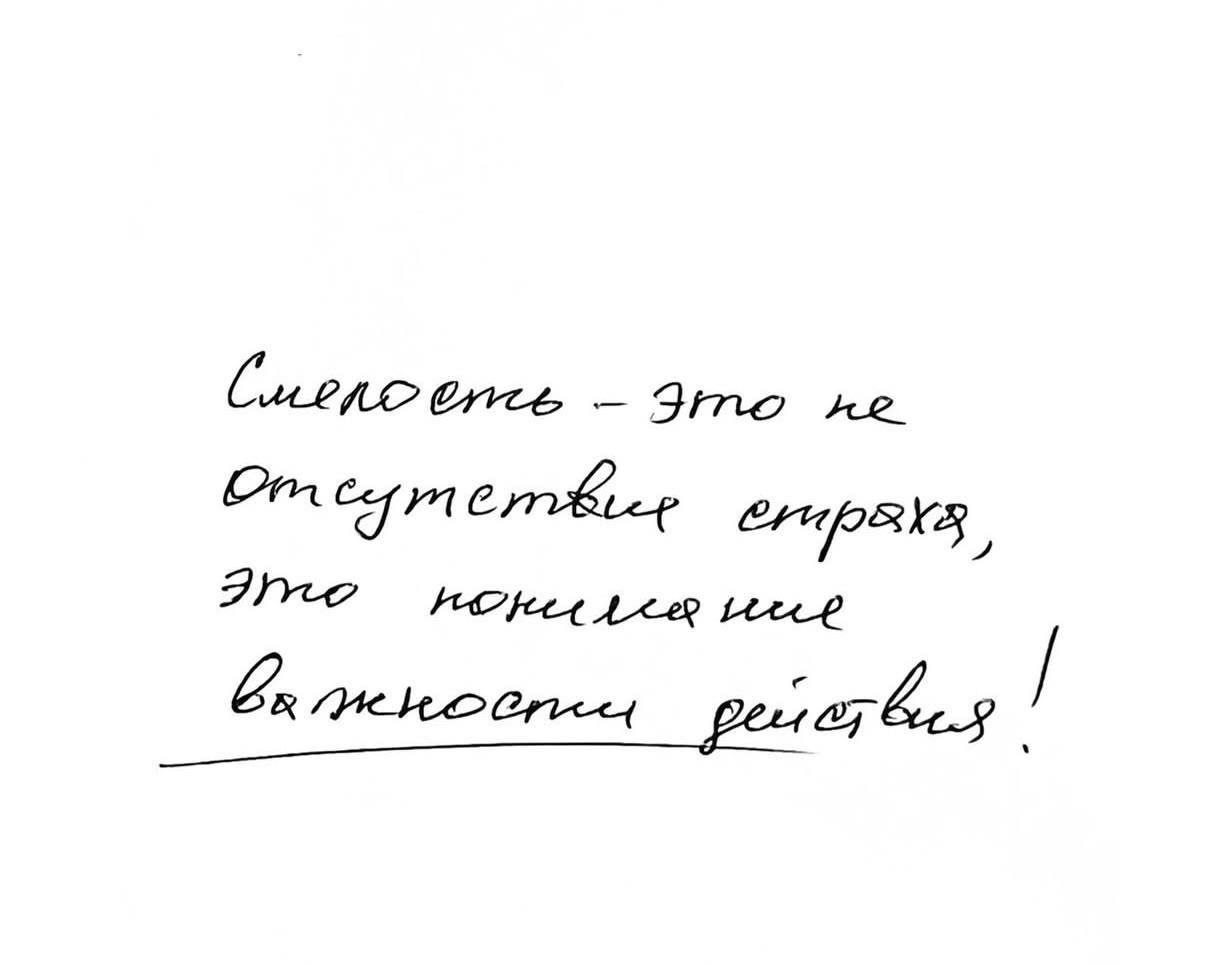 Смелость – это не
отсутствие страха,
это понимание
важности действия!